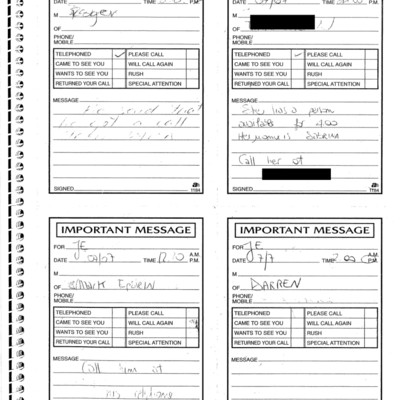 DATE TIME P.M.
M Roger
OF
PHONE/
MOBILE
TELEPHONED ✓ PLEASE CALL
CAME TO SEE YOU WILL CALL AGAIN
WANTS TO SEE YOU RUSH
RETURNED YOUR CALL SPECIAL ATTENTION
MESSAGE
he
got a call
SIGNED 1184
DATE 07/07 TIME P.M.
M
OF
PHONE/
MOBILE
TELEPHONED ✓ PLEASE CALL
CAME TO SEE YOU WILL CALL AGAIN
WANTS TO SEE YOU RUSH
RETURNED YOUR CALL SPECIAL ATTENTION
MESSAGE
She has a person
available for 4:00
Her name is
Call her at
SIGNED 1184
IMPORTANT MESSAGE
FOR JE
DATE 07/07 TIME A.M.
P.M.
M
OF Mark
PHONE/
MOBILE
TELEPHONED PLEASE CALL
CAME TO SEE YOU WILL CALL AGAIN
WANTS TO SEE YOU RUSH
RETURNED YOUR CALL SPECIAL ATTENTION
MESSAGE
Call him at
IMPORTANT MESSAGE
FOR JE
DATE 7/7 TIME A.M.
P.M.
M
OF DARREN
PHONE/
MOBILE
TELEPHONED PLEASE CALL
CAME TO SEE YOU WILL CALL AGAIN
WANTS TO SEE YOU RUSH
RETURNED YOUR CALL SPECIAL ATTENTION
MESSAGE